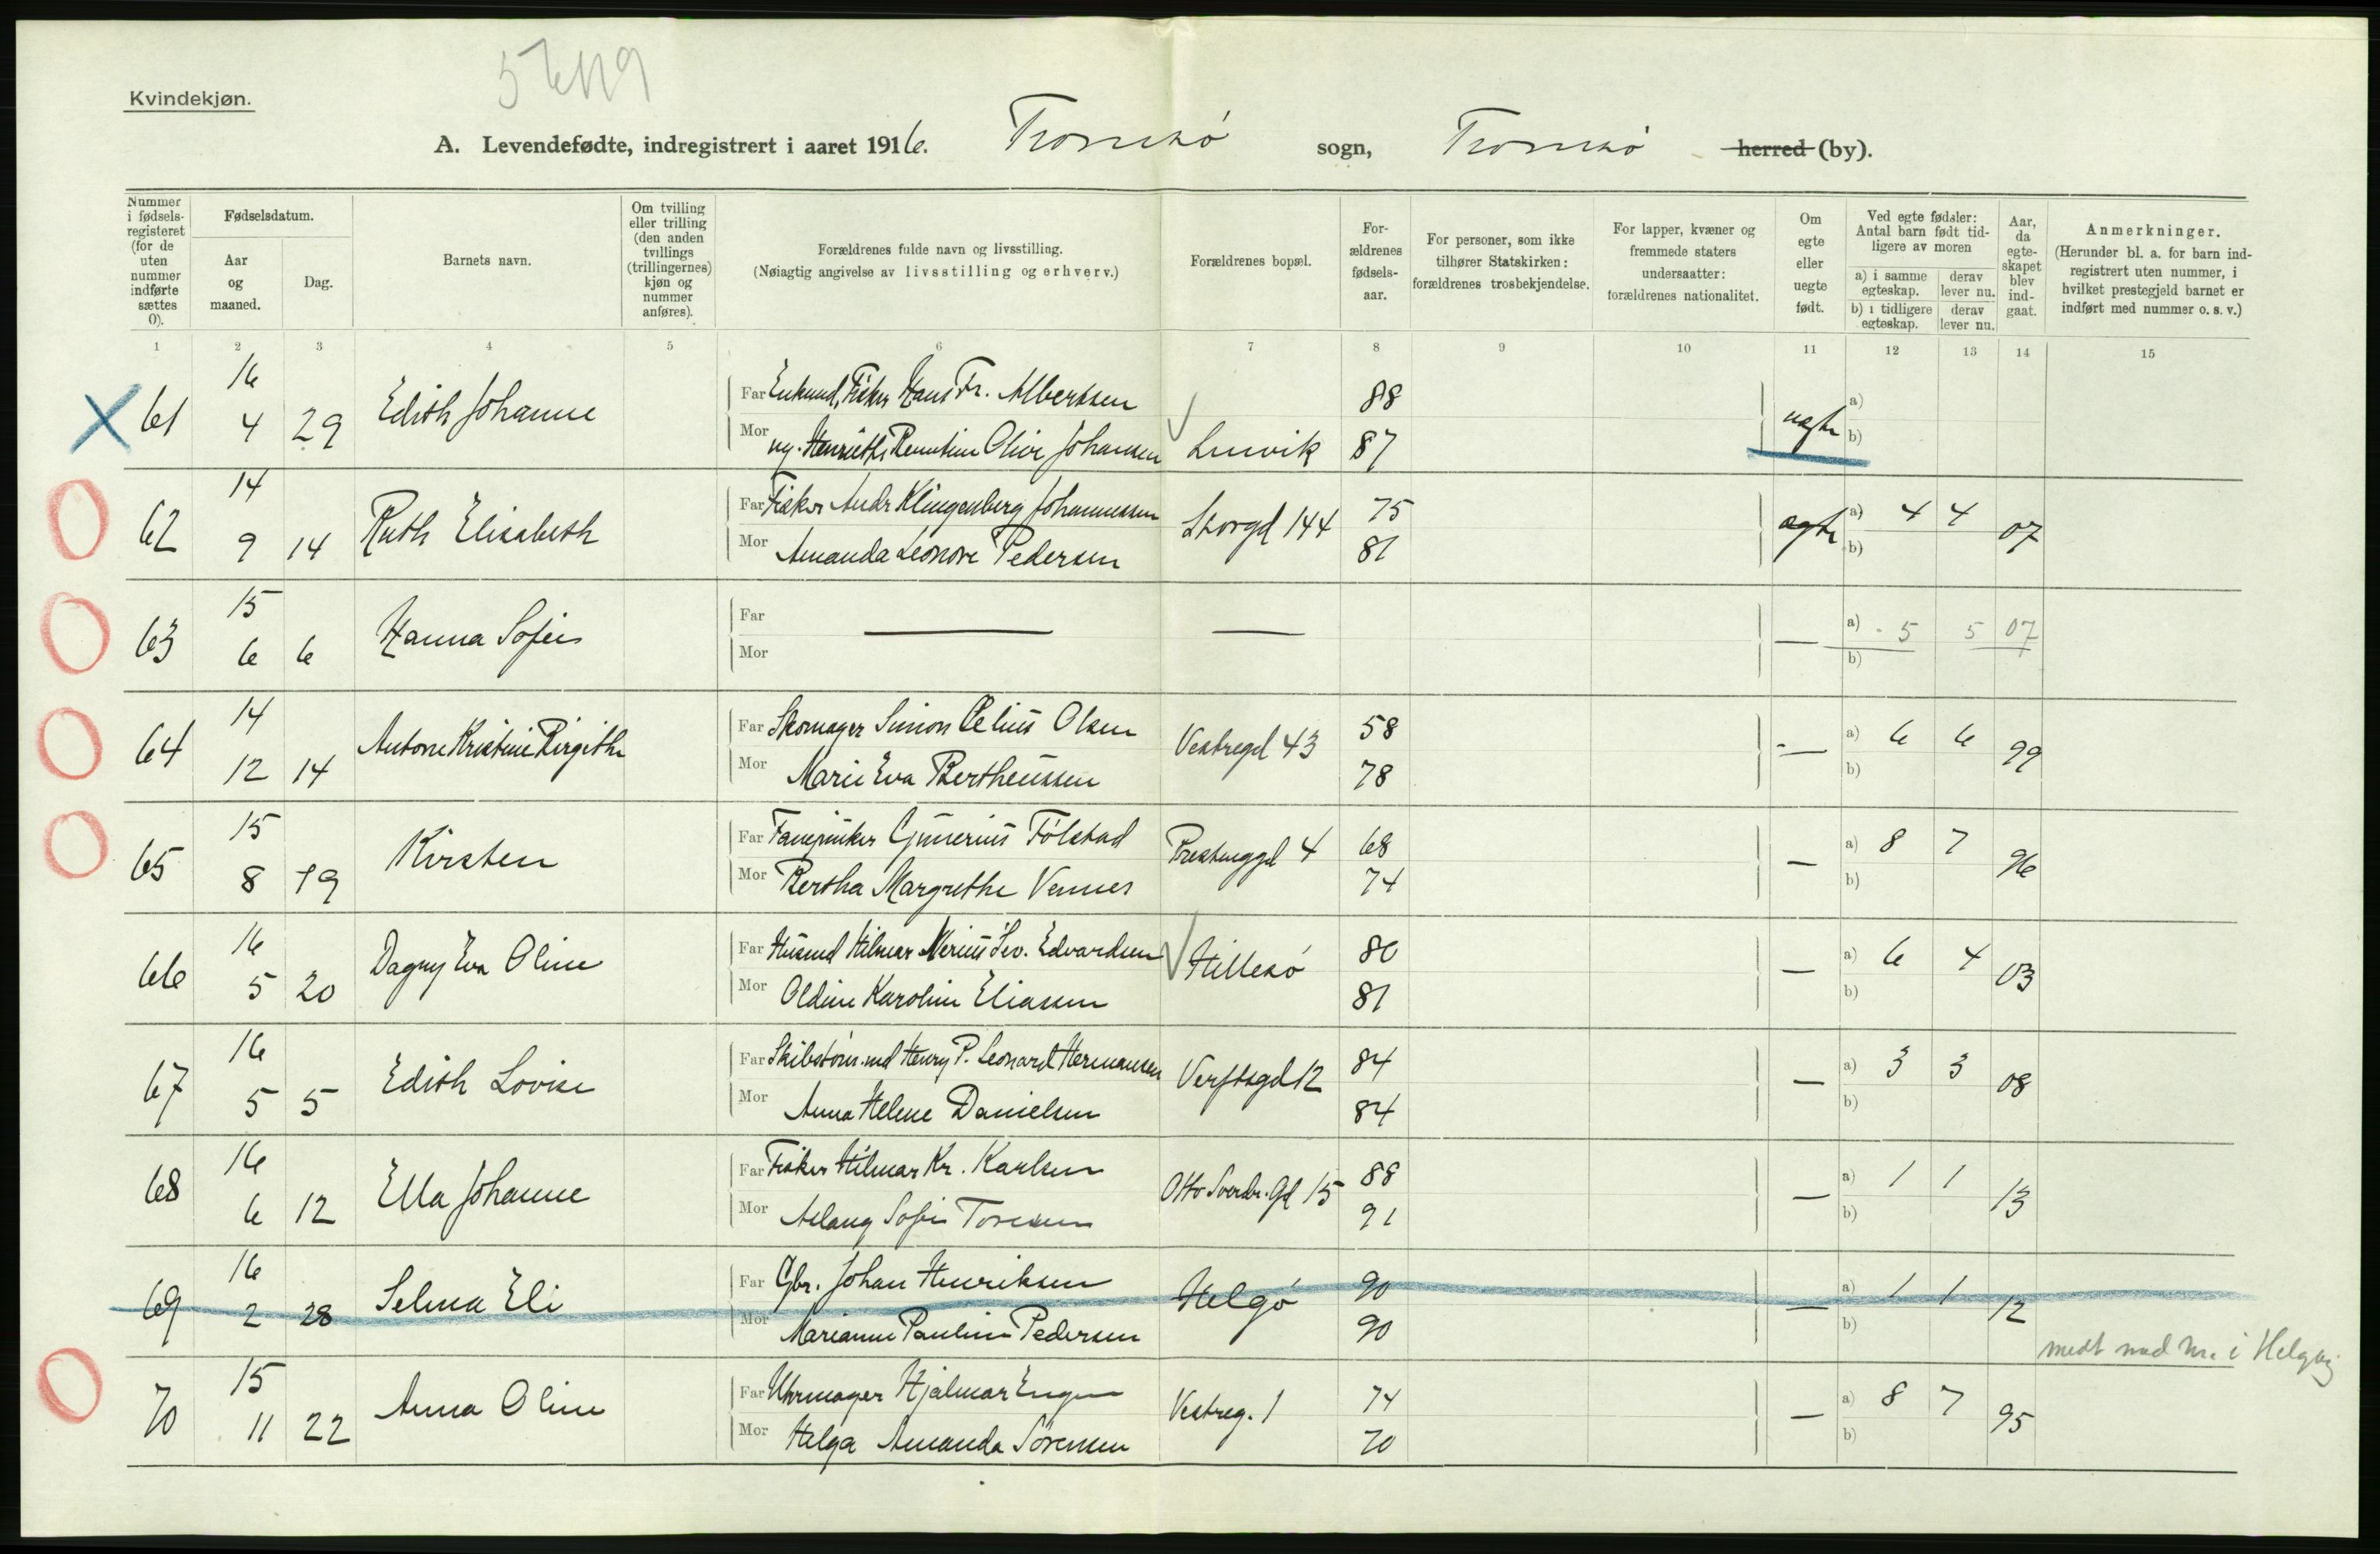 Kvindekjøn.
A. Levendefødte, indregistrert i aaret 1916. Tromsø sogn, Tromsø herred (by).
Nummer i fødsels-registeret (for de uten nummer indførte sættes 0).
Fødselsdatum.
Aar og maaned.
Dag.
Barnets navn.
Om tvilling eller trilling (den anden tvillings (trillingernes) kjøn og nummer anføres).
Forældrenes fulde navn og livsstilling.
(Nøiagtig angivelse av livsstilling og erhverv.)
Forældrenes bopæl.
For-ældrenes fødsels-aar.
For personer, som ikke tilhører Statskirken: forældrenes trosbekjendelse.
For lapper, kvæner og fremmede staters undersaatter: forældrenes nationalitet.
Om egte eller uegte født.
Ved egte fødsler: Antal barn født tid-ligere av moren
a) i samme egteskap. derav lever nu.
b) i tidligere egteskap. derav lever nu.
Aar, da egte-skapet blev ind-gaat.
Anmerkninger.
(Herunder bl. a. for barn ind-registrert uten nummer, i hvilket prestegjeld barnet er indført med nummer o. s. v.)
1 2 3 4 5 6 7 8 9 10 11 12 13 14 15
61 16 4 29 Edith Johanne
Far Enkemd, Fisker Hans Fr. Albertsen 88 uegte a)
Mor Johansen Lenvik 87 b)
62 14 9 14 Ruth Elisabeth
Far Fisker Andr Klingenberg Johannessen Storgd 144 75 egte a) 4 4 07
Mor Amanda Leonore Pedersen 81 b)
63 15 6 6 Hanna Sofie
Far — — — a) 5 5 07
Mor b)
64 14 12 14 Antone Kristine Birgithe
Far Skomager Simon Celius Olsen Vestregd 43 58 — a) 6 6 99
Mor Marie Eva Bertheussen 78 b)
65 15 8 19 Kirsten
Far Fanejunker Gunerius Følstad 4 68 — a) 8 7 96
Mor Bertha Margrethe Vennes 74 b)
66 16 5 20 Dagny Eva Oline
Far Husmd Hilmar Nerius Sev. Edvardsen Hillesø 80 — a) 6 4 03
Mor Oldine Karoline Eliassen 81 b)
67 16 5 5 Edith Lovise
Far Skibstøm.md Henry P. Leonard Hermansen Verftsgd 12 84 — a) 3 3 08
Mor Anna Helene Danielsen 84 b)
68 16 6 12 Ella Johanne
Far Fisker Hilmar Kr. Karlsen Otto Sverdr. Gd 15 88 — a) 1 1 13
Mor Aslaug Sofie Toresen 91 b)
69 16 2 28 Selma Eli
Far Gbr. Johan Henriksen Helgø 90 — a) 1 1 12
Mor Marianne Pauline Pedersen 90 b)
medt med nr. i Helgøy
70 15 11 22 Anna Oline
Far Uhrmager Hjalmar Engen Vestreg. 1 74 — a) 8 7 95
Mor Helga Amanda Sørensen 70 b)